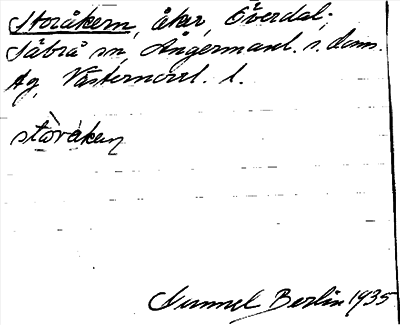 Storåkern, åker, Överdal,
Säbrå sn, Ångermanl. s. doms.
äg, Västernorrl. l.
stòråkeṇ
Gunnel Berlin 1935